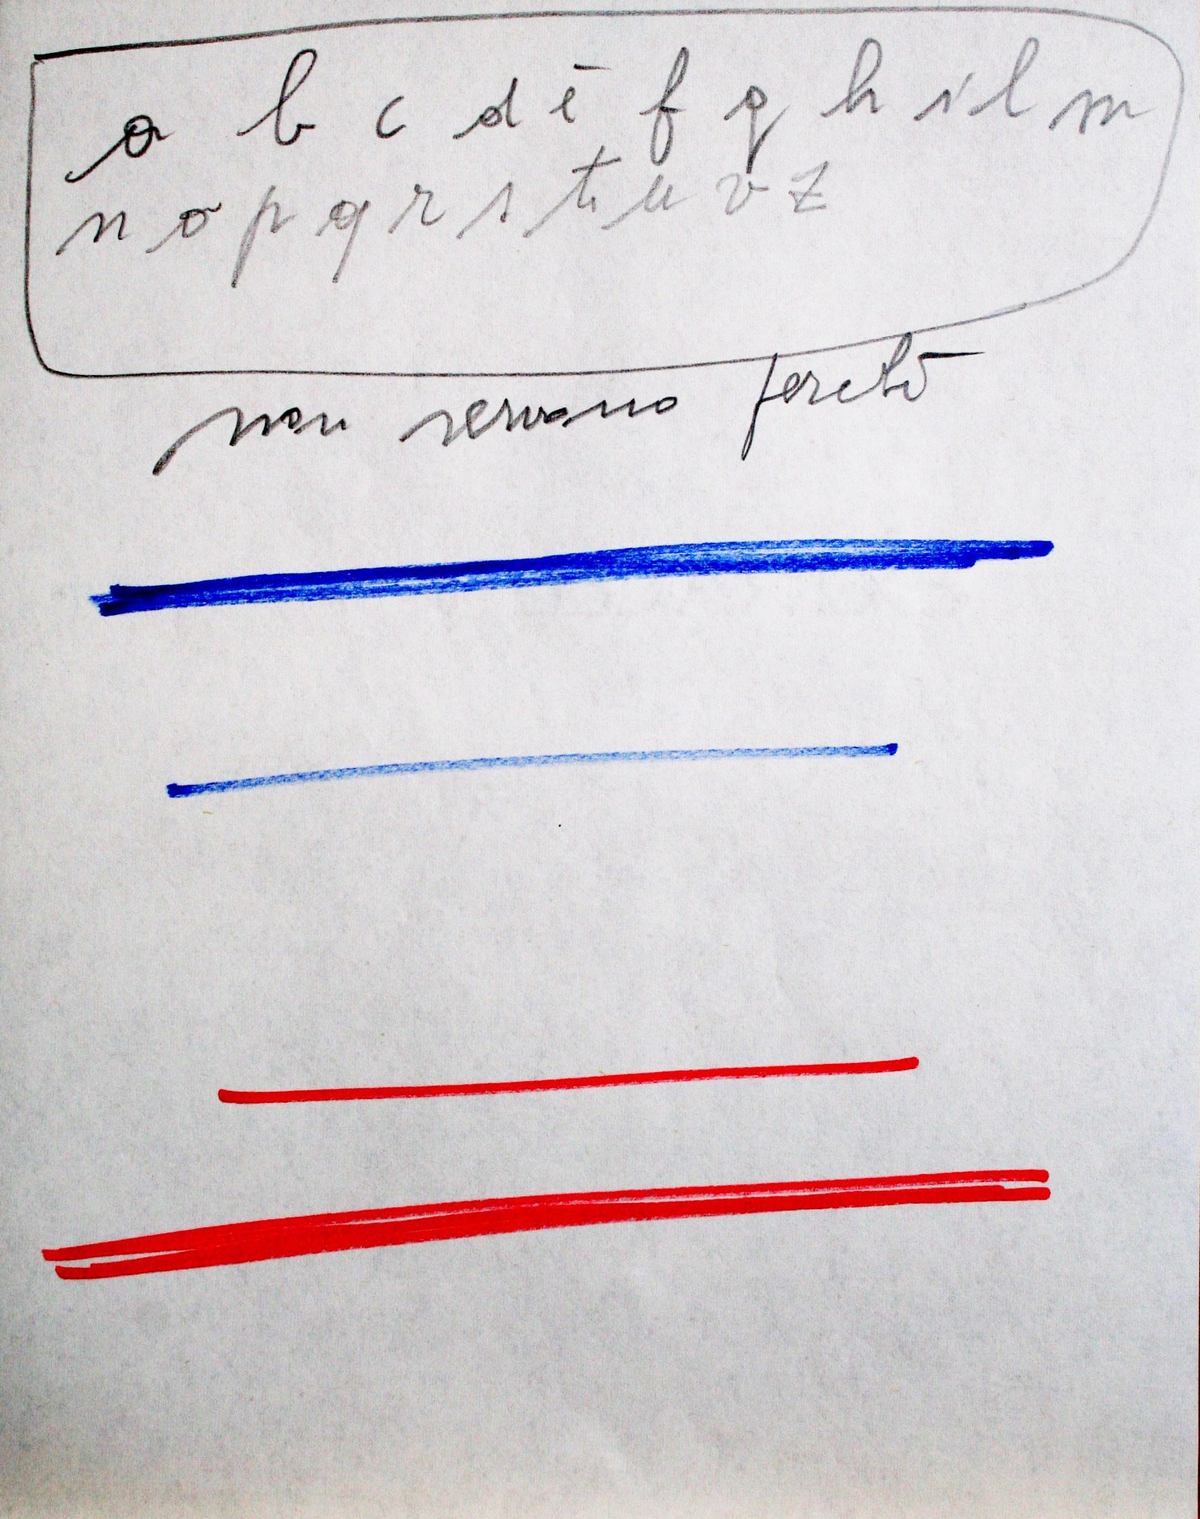 a b c d e f g h i l m
n o p q r s t u v z
non servono perchè